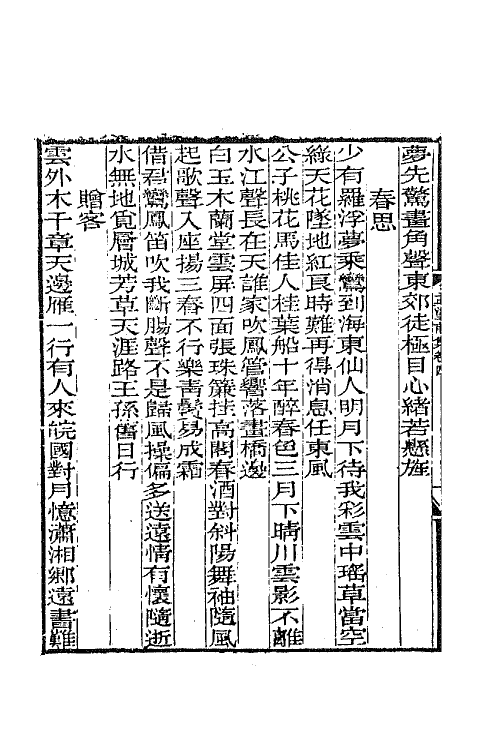 夢先驚畫角聲東郊徒極目心緒若懸旌
春思
少有羅浮夢乘鸞到海東仙人明月下待我彩雲中瑤草當空
綠天花墜地紅良時難再得消息任東風
公子桃花馬佳人桂葉船十年醉春色三月下晴川雲影不離
水江聲長在天誰家吹鳳管響落畫橋邊
白玉木蘭堂雲屏四面張珠簾挂高閣春酒對斜陽舞袖隨風
起歌聲入座揚三春不行樂靑鬢易成霜
借君鸞鳳笛吹我斷腸聲不是歸風操偏多送遠情有懷隨逝
水無地覓層城芳草天涯路王孫舊日行
贈客
雲外木千章天邊雁一行有人來皖國對月憶瀟湘鄉遠書難